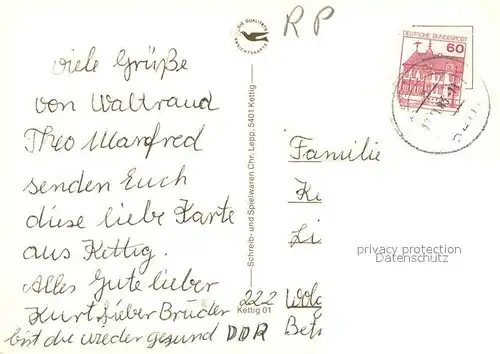 viele Grüße
von Waltraud
Theo Manfred
senden Euch
diese liebe Karte
aus Kettig.
Alles Gute lieber
Kurt, lieber Brüder
bist du wieder gesund
DIE QUALITÄTS
ANSICHTSKARTE
Schreib- und Spielwaren Chr. Lepp. 5401 Kettig
Kettig 01
R P
DEUTSCHE BUNDESPOST
60
Familie
Ki
Li
privacy protection
Datenschutz
222
DDR Bets